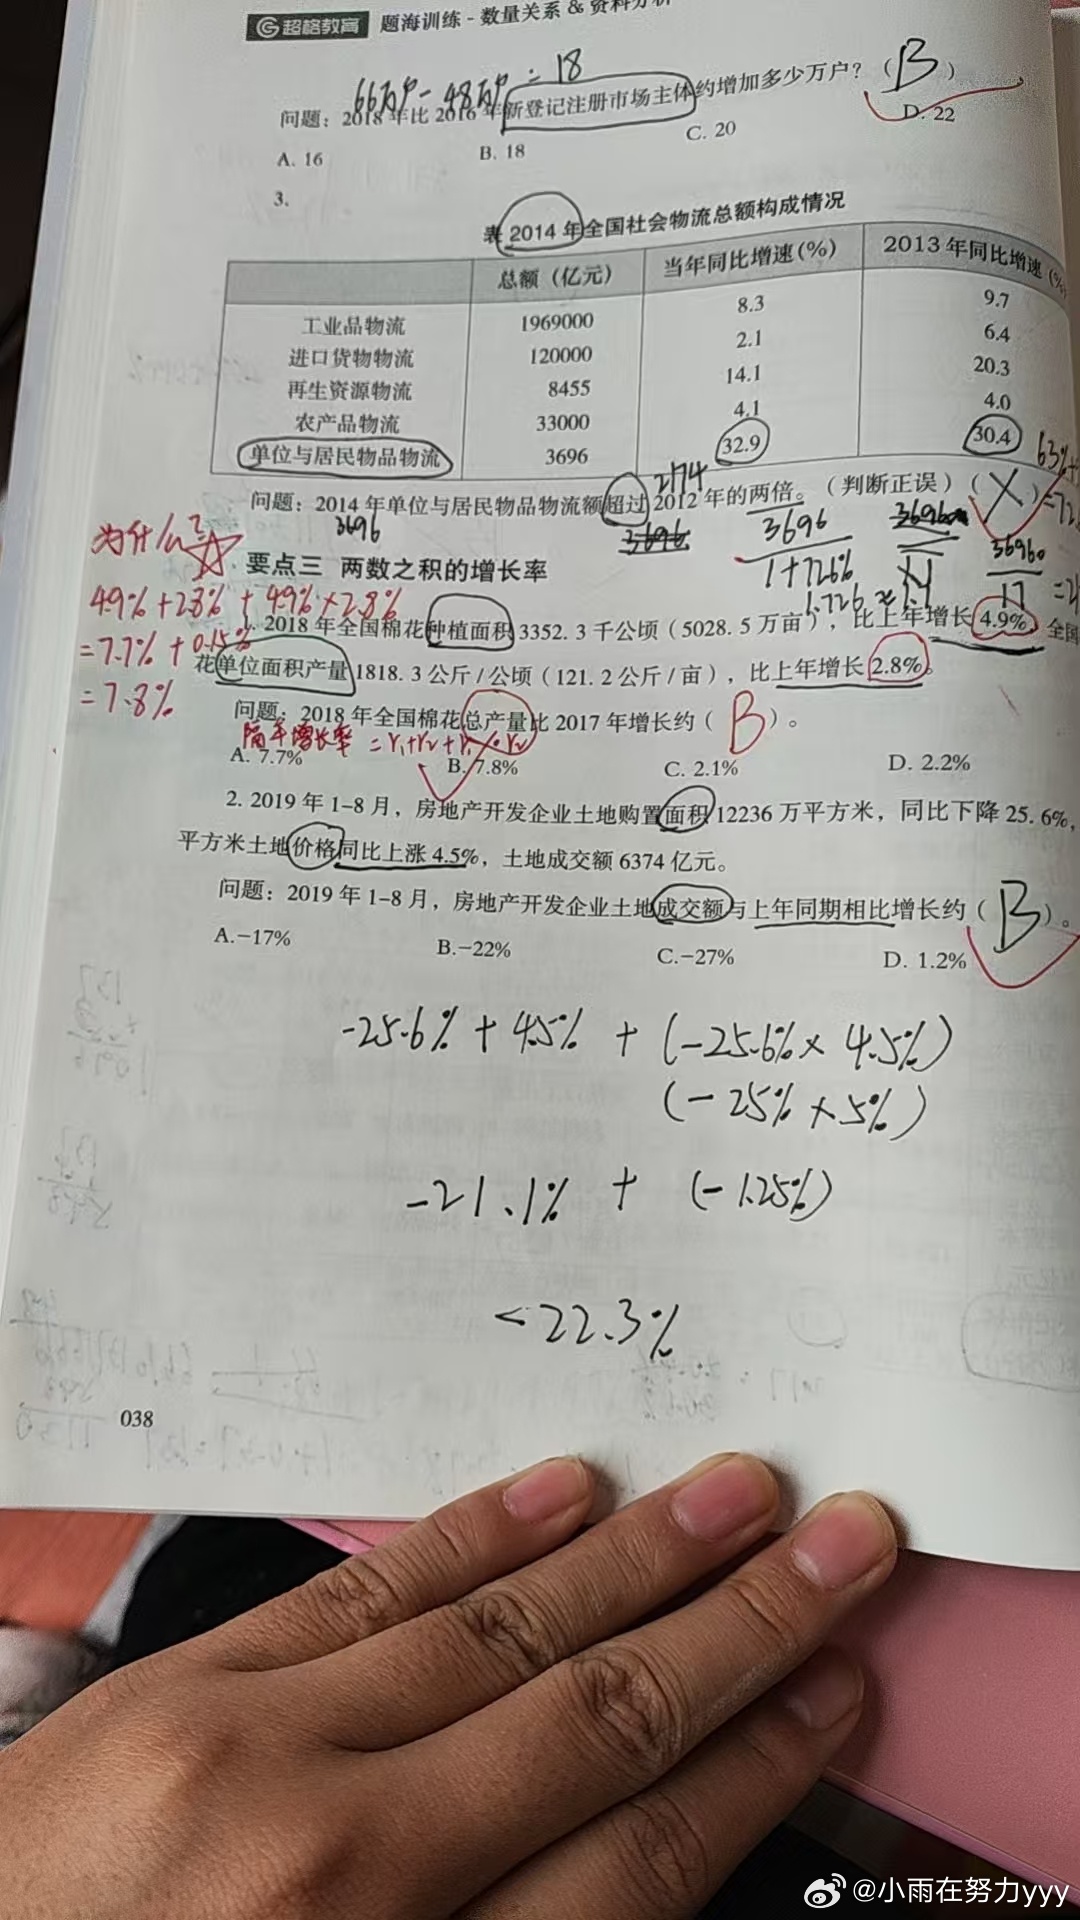 超格教育 题海训练-数量关系&资料分析
66万户-48万户=18
问题：2018年比2016年新登记注册市场主体约增加多少万户？（B）
A. 16 B. 18 C. 20 D. 22
3.
表 2014年全国社会物流总额构成情况
总额（亿元） 当年同比增速(%) 2013年同比增速(%)
工业品物流 1969000 8.3 9.7
进口货物物流 120000 2.1 6.4
再生资源物流 8455 14.1 20.3
农产品物流 33000 4.1 4.0
单位与居民物品物流 3696 32.9 30.4
2174
63%+
问题：2014年单位与居民物品物流额超过2012年的两倍。（判断正误）（X）
3696
3696
3696
1+72.6%
1.726≈1.7
36960
17
为什么？
要点三 两数之积的增长率
4.9%+2.8%+4.9%×2.8%
=7.7%+0.15%
=7.8%
1. 2018年全国棉花种植面积3352.3千公顷（5028.5万亩），比上年增长4.9%，全国
花单位面积产量1818.3公斤/公顷（121.2公斤/亩），比上年增长2.8%。
问题：2018年全国棉花总产量比2017年增长约（B）。
隔年增长率=r₁+r₂+r₁×r₂
A. 7.7% B. 7.8% C. 2.1% D. 2.2%
2. 2019年1-8月，房地产开发企业土地购置面积12236万平方米，同比下降25.6%，
平方米土地价格同比上涨4.5%，土地成交额6374亿元。
问题：2019年1-8月，房地产开发企业土地成交额与上年同期相比增长约（B）。
A.-17% B.-22% C.-27% D. 1.2%
-25.6%+4.5%+(-25.6%×4.5%)
(-25%×5%)
-21.1%+(-1.25%)
<22.3%
038
@小雨在努力yyy